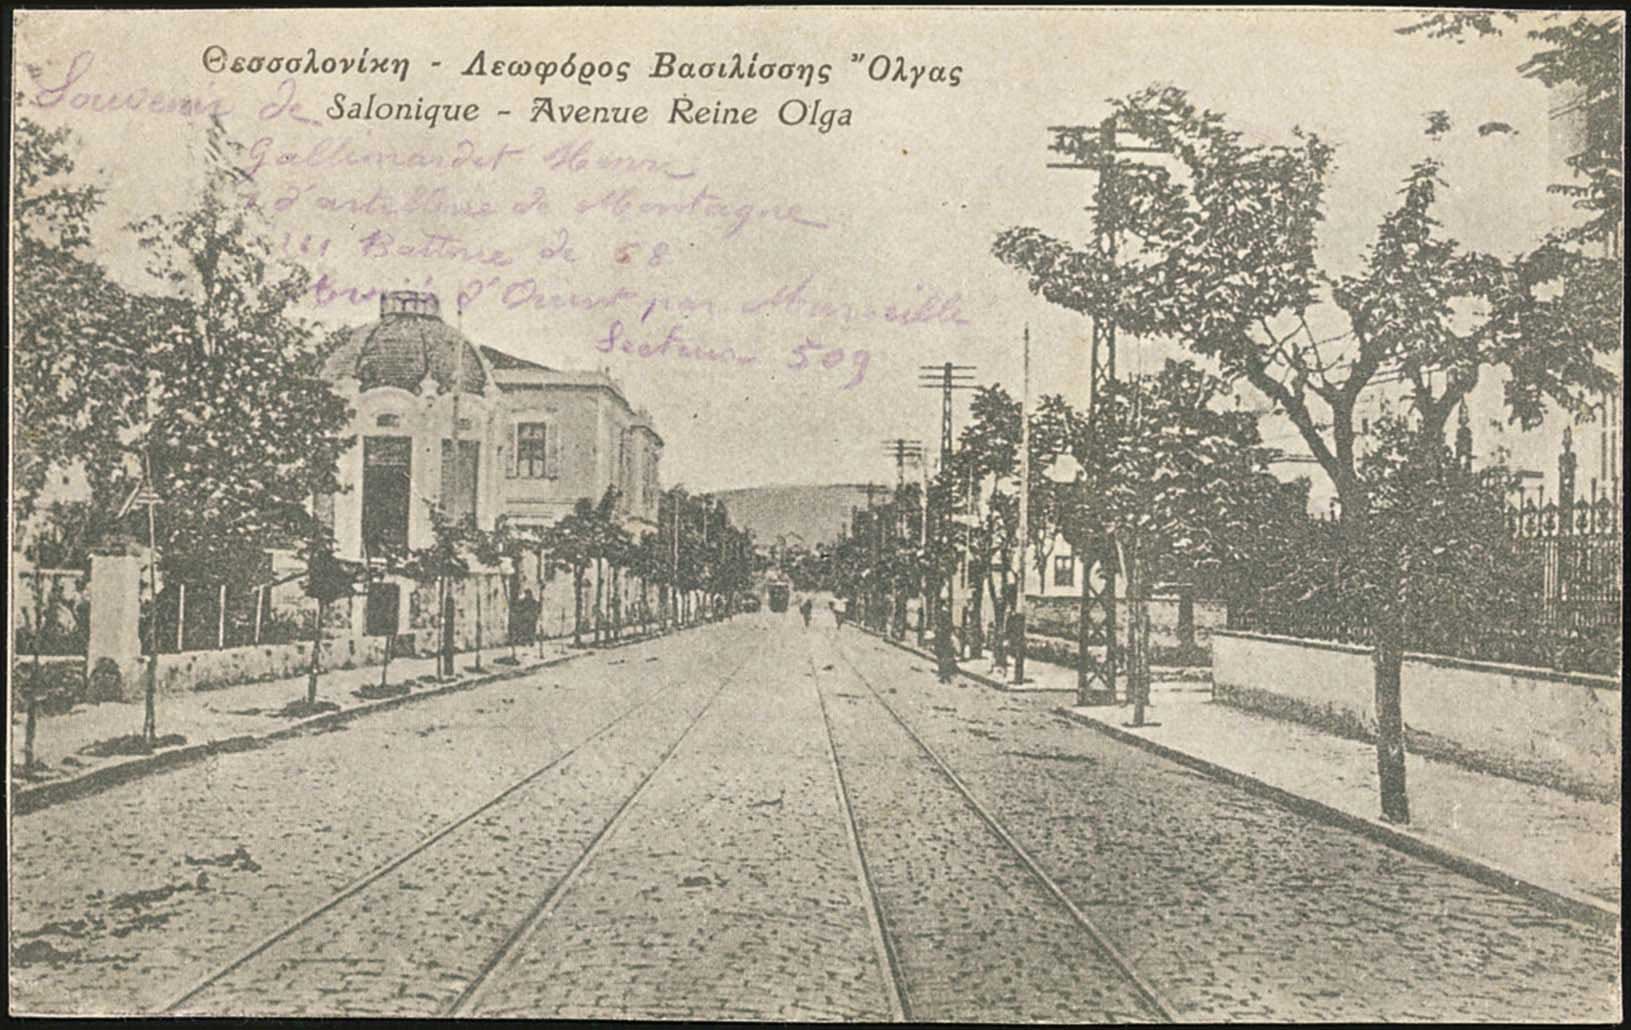 Θεσσσλονίκη - Λεωφόρος Βασιλίσσης Ὄλγας
Salonique - Avenue Reine Olga
Souvenir de
Gallimardet Henri
d'artillerie de Montagne
Batterie de 58
Armée d'Orient par Marseille
Secteur 509